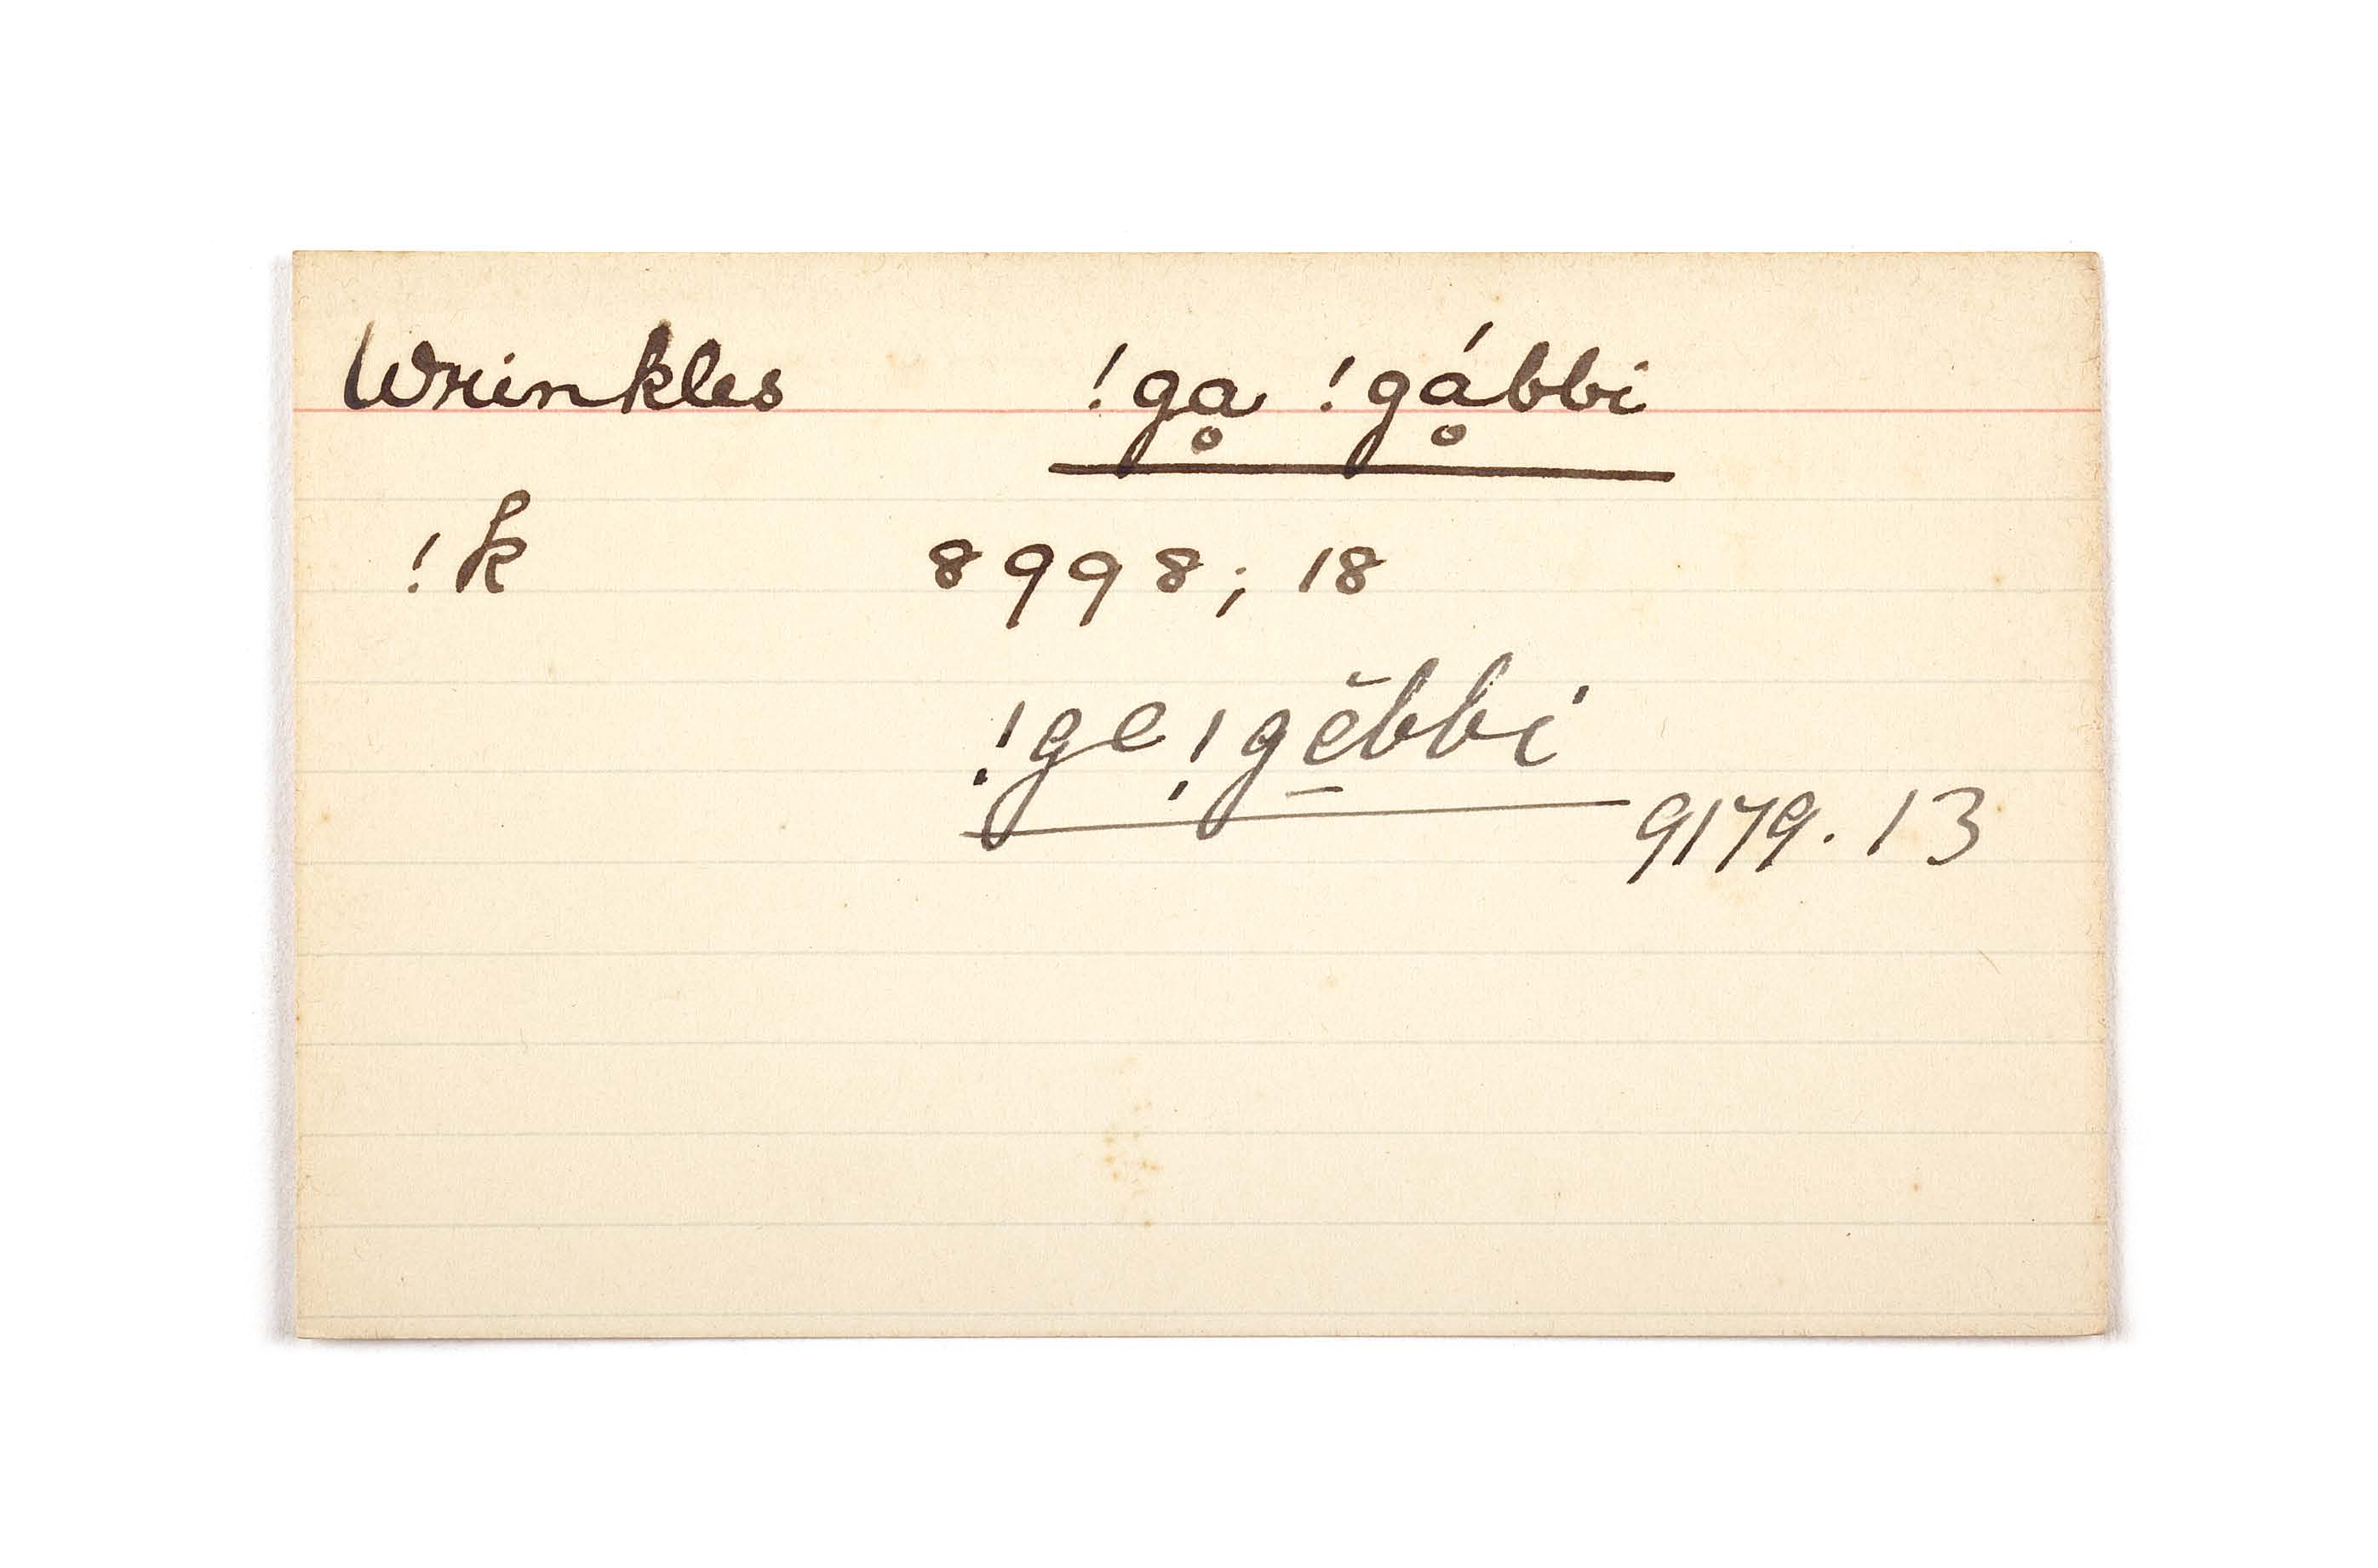 Wrinkles !ḁg̊a !gḁ́bbi
!k 8998; 18
!ge !gĕ̱bbi
9179. 13